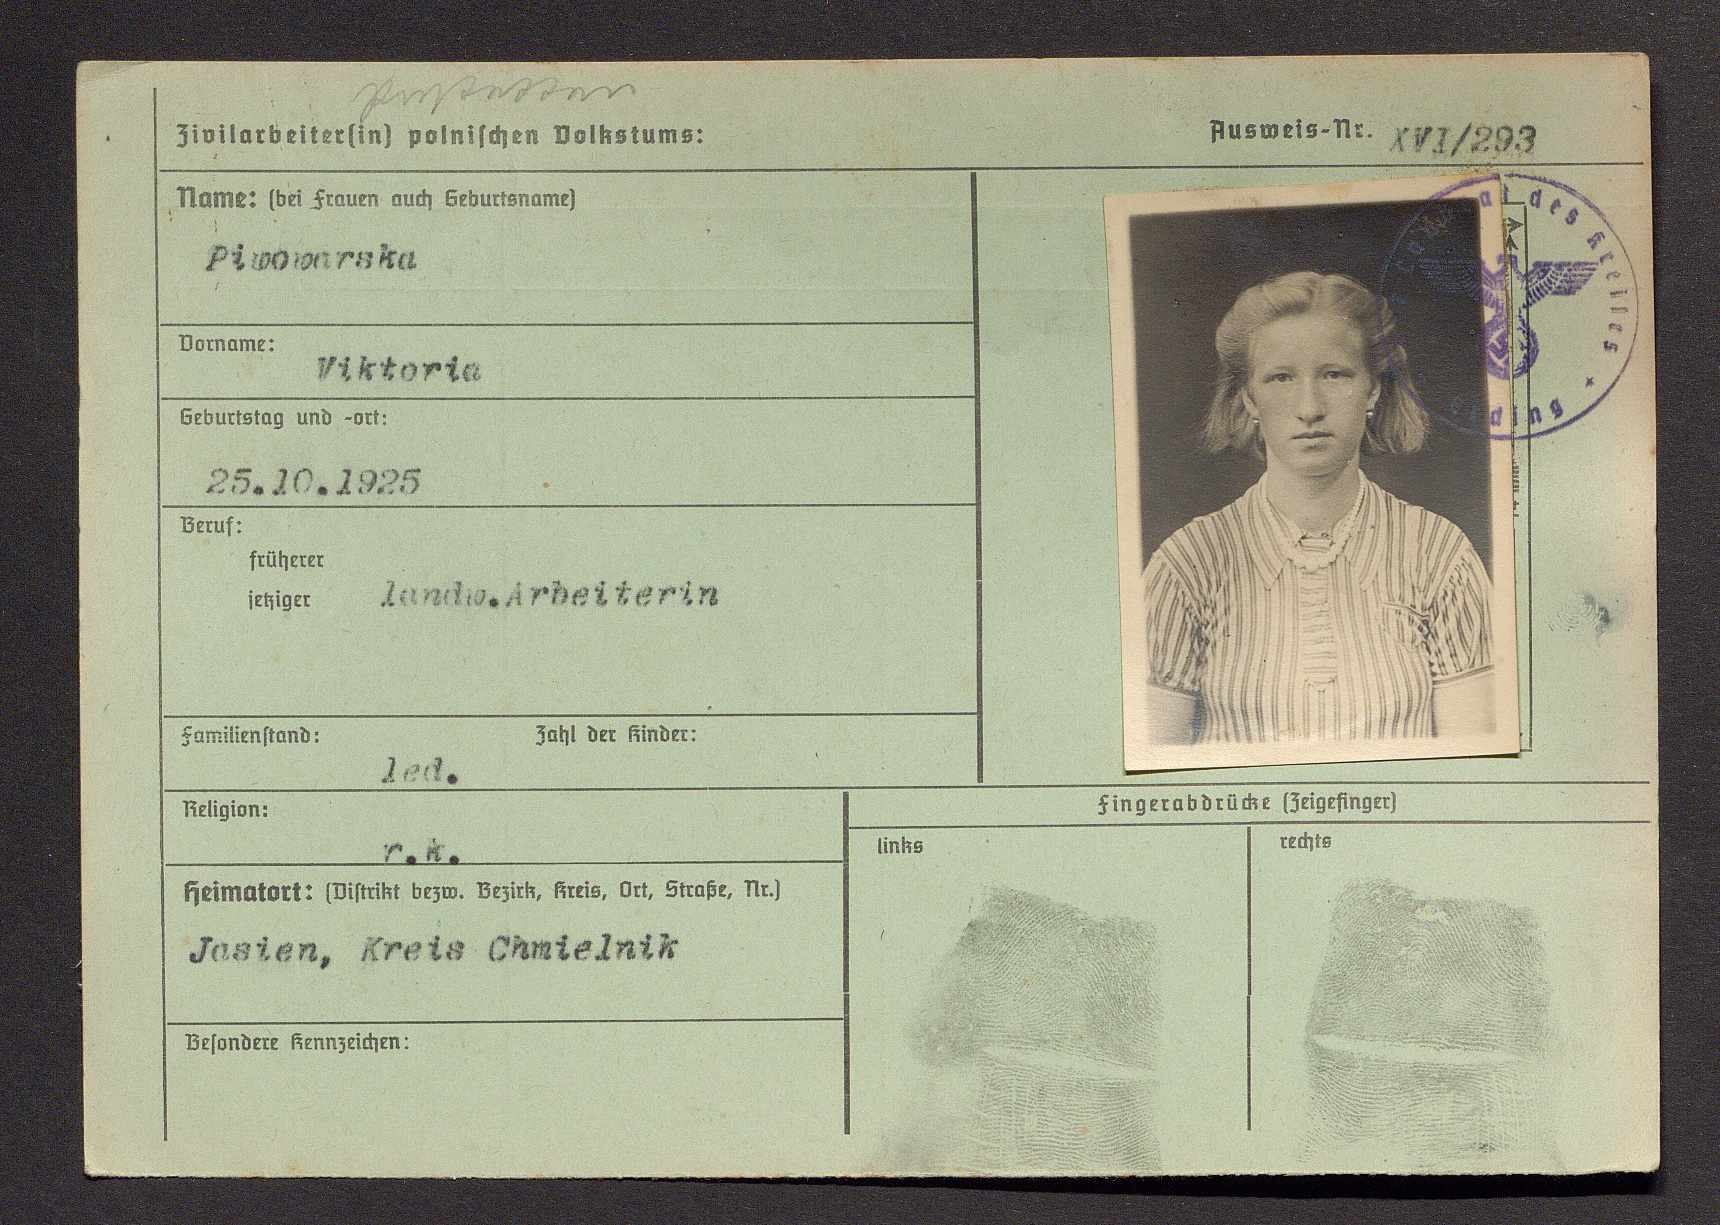 Zivilarbeiter(in) polnischen Volkstums:
Ausweis-Nr. XVI/293
Name: (bei Frauen auch Geburtsname)
Piwowarska
Vorname:
Viktoria
Geburtstag und -ort:
25.10.1925
Beruf:
früherer
jetziger landw.Arbeiterin
Familienstand: Zahl der Kinder:
led.
Religion:
r.k.
Heimatort: (Distrikt bezw. Bezirk, Kreis, Ort, Straße, Nr.)
Jasien, Kreis Chmielnik
Besondere Kennzeichen:
Fingerabdrücke (Zeigefinger)
links
rechts
des Kreises